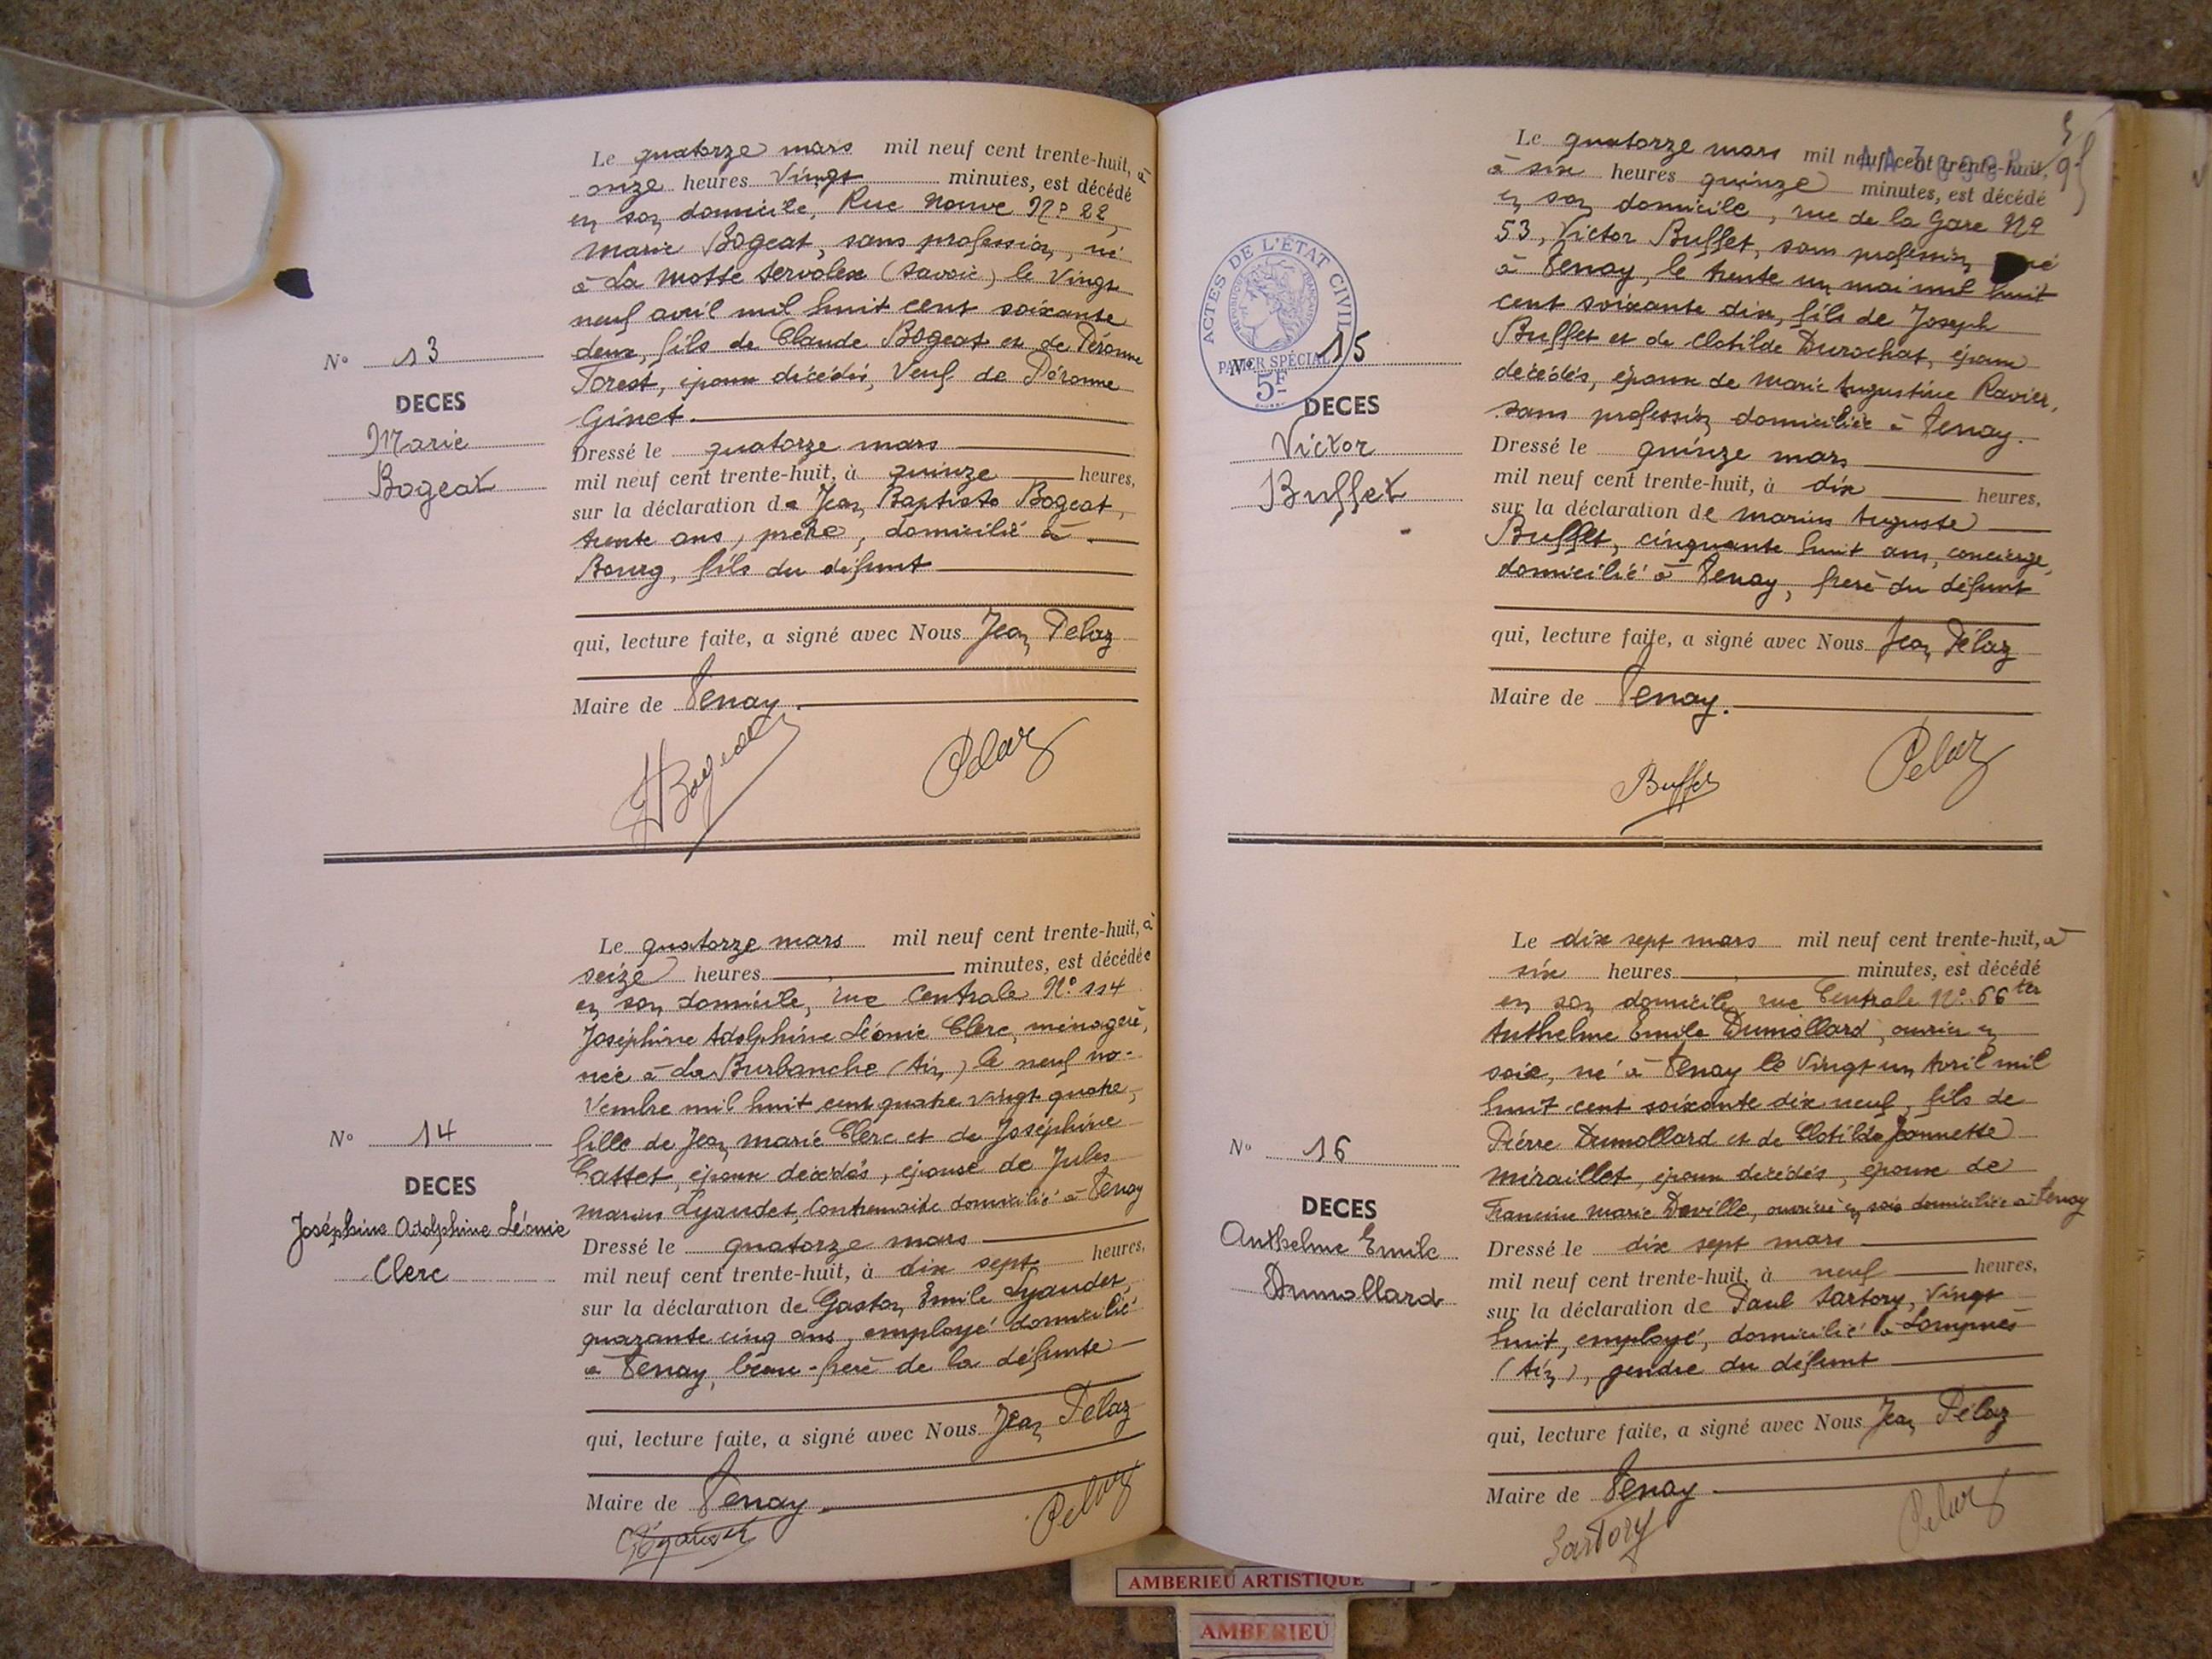 Le quatorze mars mil neuf cent trente-huit, à
onze heures vingt minutes, est décédé
en son domicile, Rue Neuve N° 22,
Marie Bogeat, sans profession, né
à La Motte Servolex (Savoie) le vingt
neuf avril mil huit cent soixante
deux, fils de Claude Bogeat et de Péronne
Forest, époux décédés, Veuf de Péronne
Ginet.
N° 13
DECES
Marie
Bogeat
Dressé le quatorze mars
mil neuf cent trente-huit, à quinze heures,
sur la déclaration de Jean Baptiste Bogeat,
trente ans, prêtre, domicilié à
Bourg, fils du défunt
qui, lecture faite, a signé avec Nous Jean Pélaz
Maire de Tenay.
Bogeat
Pelaz
Le quatorze mars mil neuf cent trente-huit, à
seize heures minutes, est décédée
en son domicile, rue Centrale N° 114
Joséphine Adolphine Léonie Clerc, ménagère,
née à La Burbanche (Ain) le neuf no-
vembre mil huit cent quatre vingt quatre,
fille de Jean Marie Clerc et de Joséphine
Cattet, époux décédés, épouse de Jules
Marius Lyaudet, Contremaître domicilié à Tenay
N° 14
DECES
Joséphine Adolphine Léonie
Clerc
Dressé le quatorze mars
mil neuf cent trente-huit, à dix sept heures,
sur la déclaration de Gaston Emile Lyaudet,
quarante cinq ans, employé domicilié
à Tenay, beau-frère de la défunte
qui, lecture faite, a signé avec Nous Jean Pélaz
Maire de Tenay.
Pelaz
Le quatorze mars mil neuf cent trente-huit,
à six heures quinze minutes, est décédé
en son domicile, rue de la Gare N°
53, Victor Buffet, sans profession né
à Tenay, le trente un mai mil huit
cent soixante dix, fils de Joseph
Buffet et de Clotilde Durochat, époux
décédés, époux de Marie Augustine Ravier,
sans profession domiciliée à Tenay.
ACTES DE L'ÉTAT CIVIL
RÉPUBLIQUE FRANÇAISE
PAPIER SPÉCIAL
5F
N° 15
DECES
Victor
Buffet
Dressé le quinze mars
mil neuf cent trente-huit, à dix heures,
sur la déclaration de Marius Auguste
Buffet, cinquante huit ans, concierge,
domicilié à Tenay, frère du défunt
qui, lecture faite, a signé avec Nous Jean Pélaz
Maire de Tenay.
Buffet
Pelaz
Le dix sept mars mil neuf cent trente-huit, à
six heures minutes, est décédé
en son domicile, rue Centrale N° 66 ter
Anthelme Emile Dumollard, ouvrier en
soie, né à Tenay le vingt un Avril mil
huit cent soixante dix neuf, fils de
Pierre Dumollard et de Clotilde Jeannette
Miraillet, époux décédés, époux de
Francine Marie Deville, ouvrière en soie domiciliée à Tenay
N° 16
DECES
Anthelme Emile
Dumollard
Dressé le dix sept mars
mil neuf cent trente-huit, à neuf heures,
sur la déclaration de Paul Sartory, vingt
huit, employé, domicilié à Lompnès
(Ain), gendre du défunt
qui, lecture faite, a signé avec Nous Jean Pélaz
Maire de Tenay
Sartory
Pelaz
AMBERIEU ARTISTIQUE
AMBERIEU